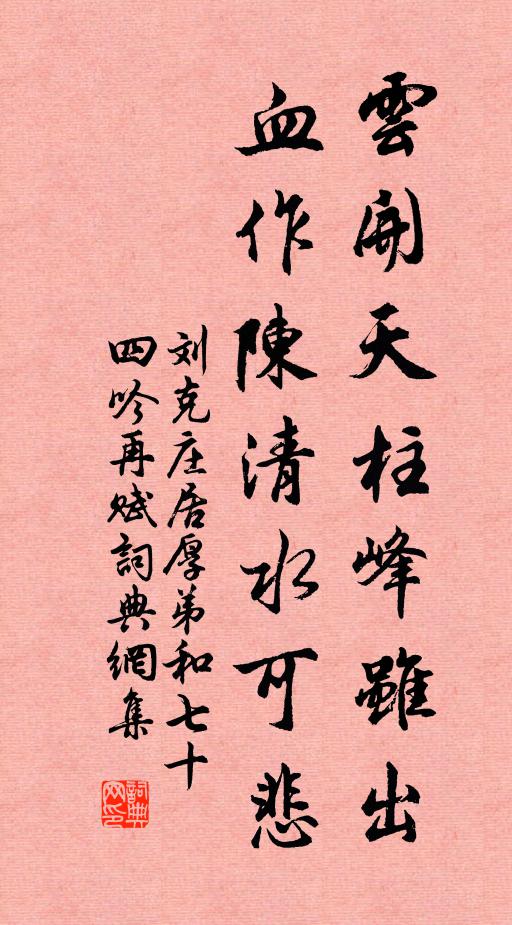 雲開天柱峰雖出
血作陳清水可悲
刘克庄居厚弟和七十
四吟再赋詞典網集
詞典
网印